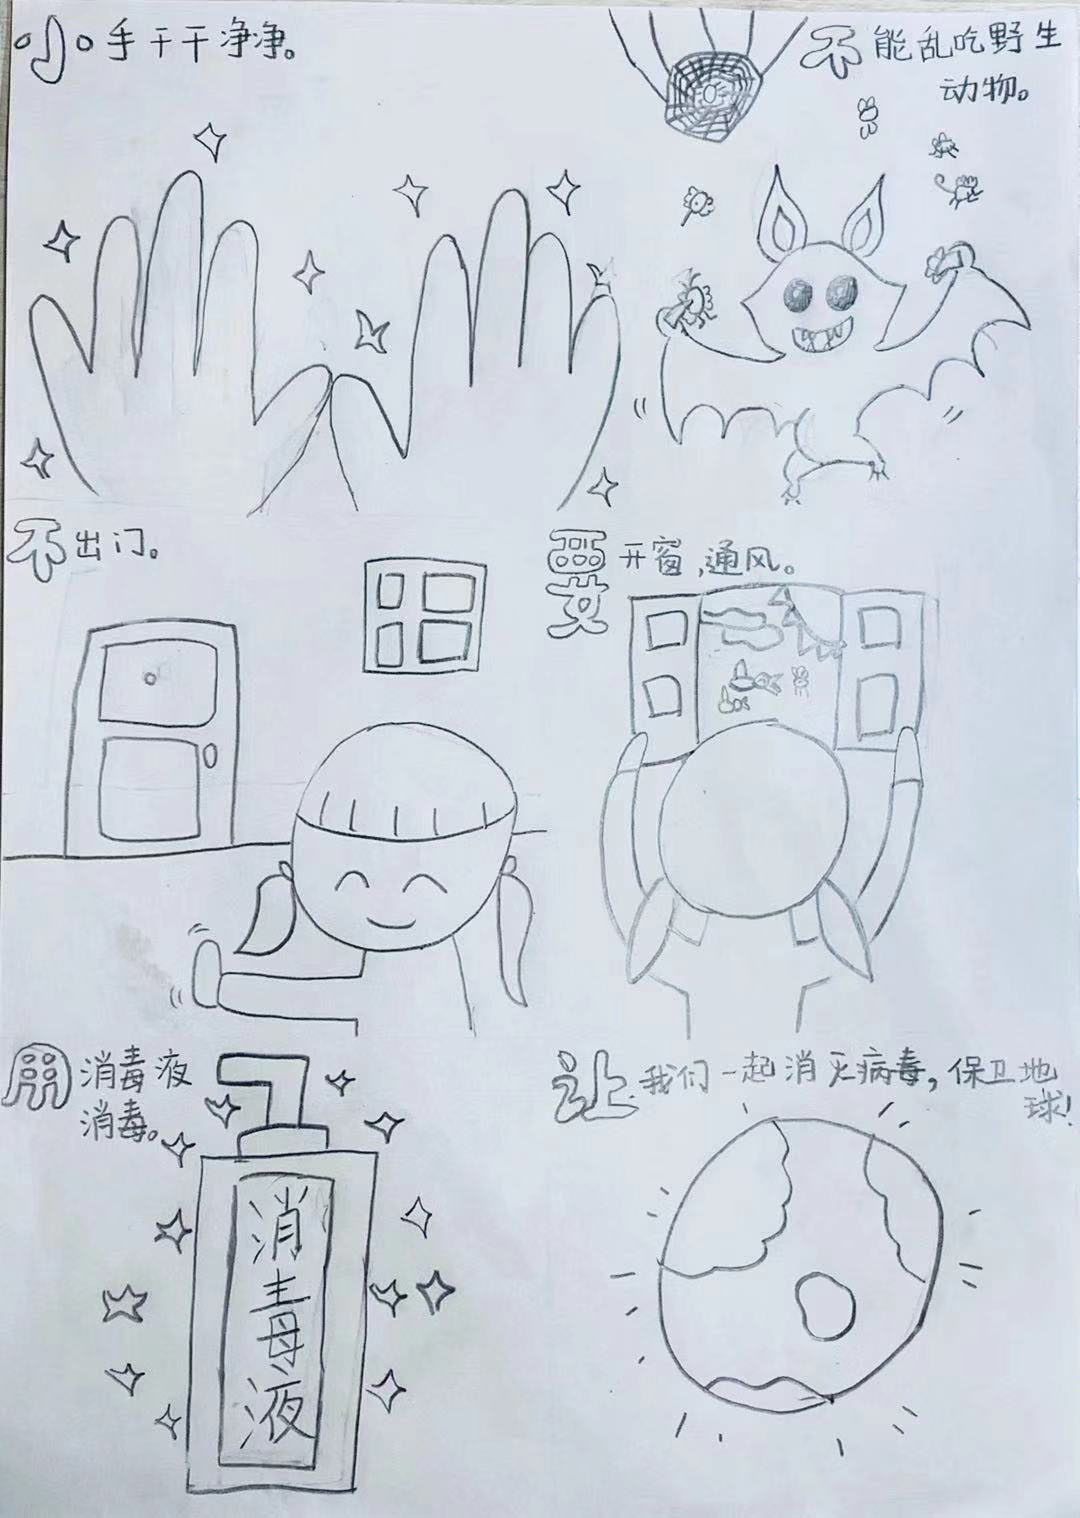 小手干干净净。
不能乱吃野生
动物。
不出门。
要开窗,通风。
用消毒液
消毒。
消毒液
让我们一起消灭病毒,保卫地
球!